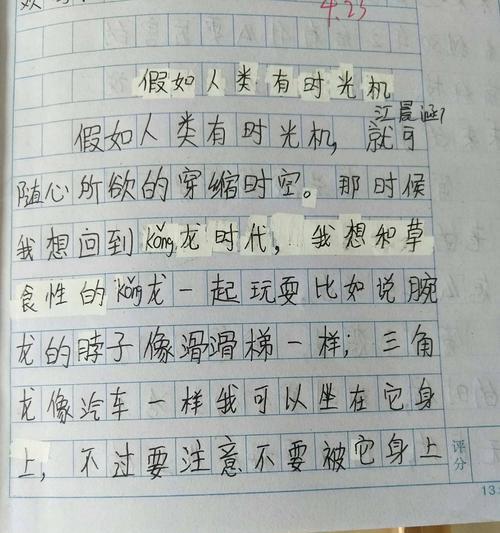 4.23
假如人类有时光机
江晨涵
假如人类有时光机，就可
随心所欲的穿缩时空。那时候
我想回到kǒng龙时代，我想和草
食性的kǒng龙一起玩耍比如说腕
龙的脖子像滑滑梯一样；三角
龙像汽车一样我可以坐在它身
上，不过要注意不要被它身上
评分